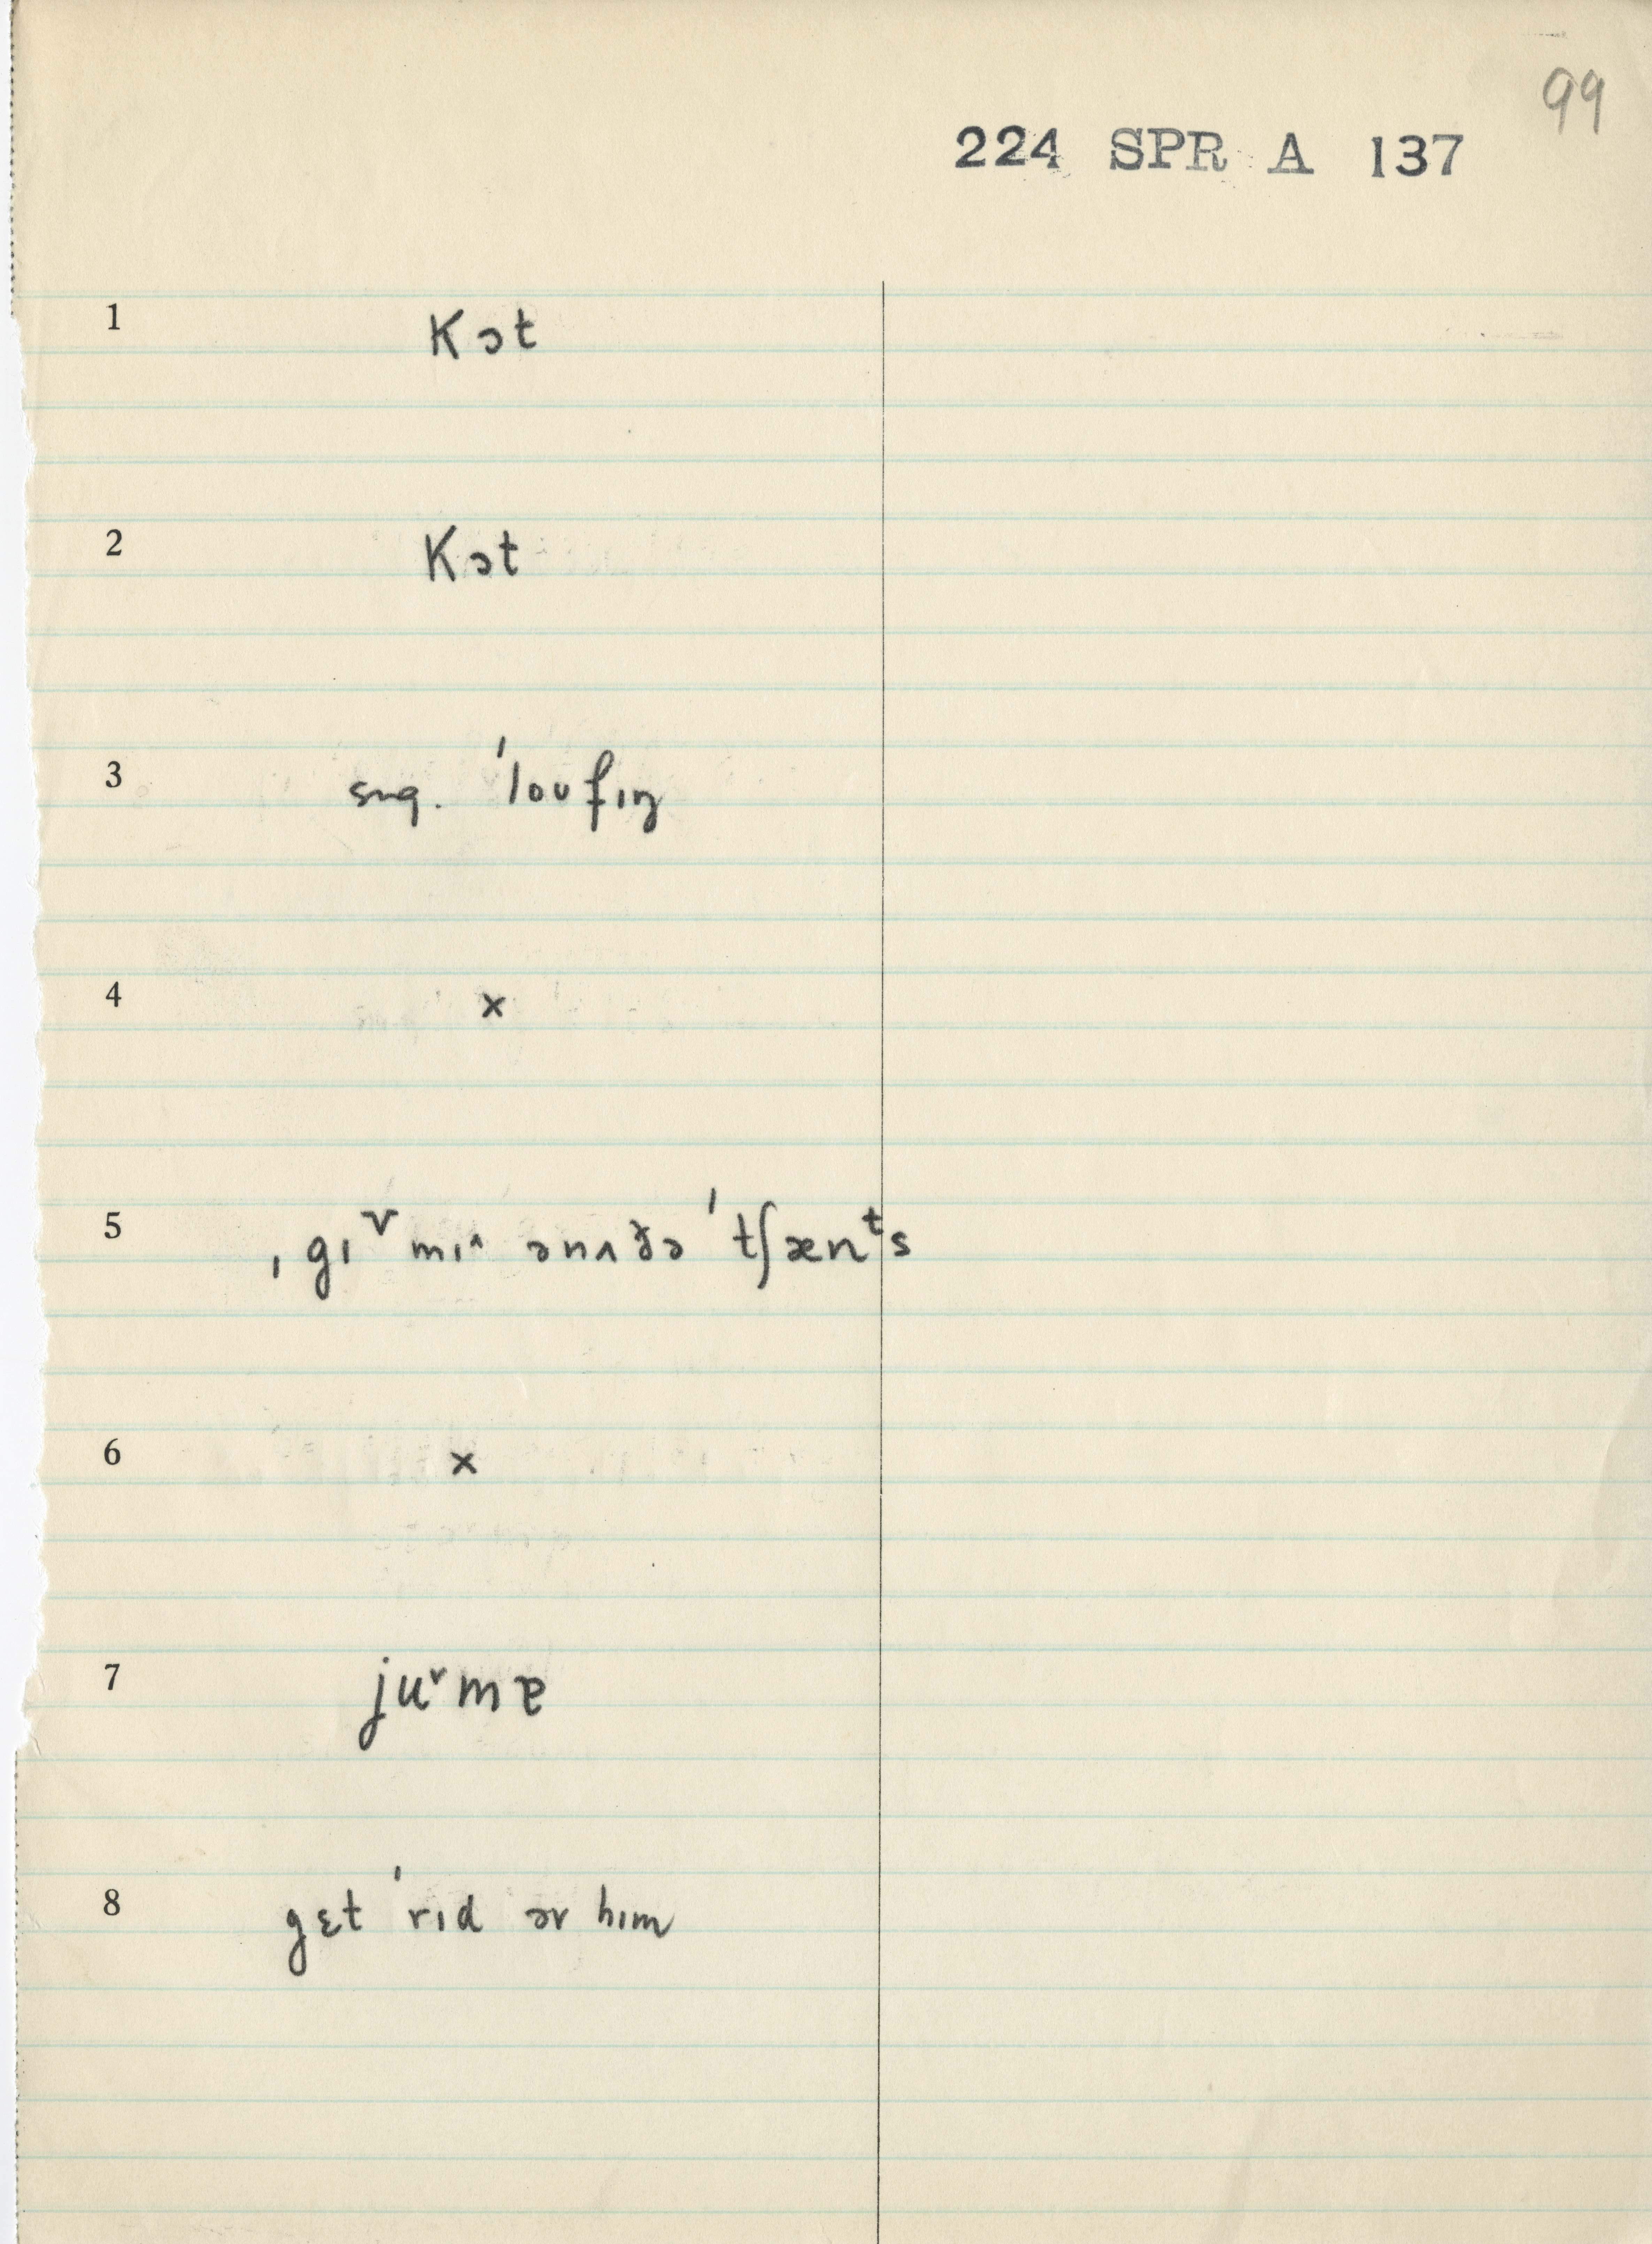 99
224 SPR A 137
1 kɔt
2 kɔt
3 sug. ˈloufɪŋ
4 x
5 ˌgɪᵛmɪ^ ənʌðə ˈtʃænᵗs
6 x
7 ju˅mɐ
8 gɛt ˈrɪd əv hɪm